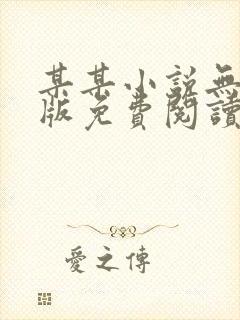 某某小說無
版免費閱讀
愛之傳